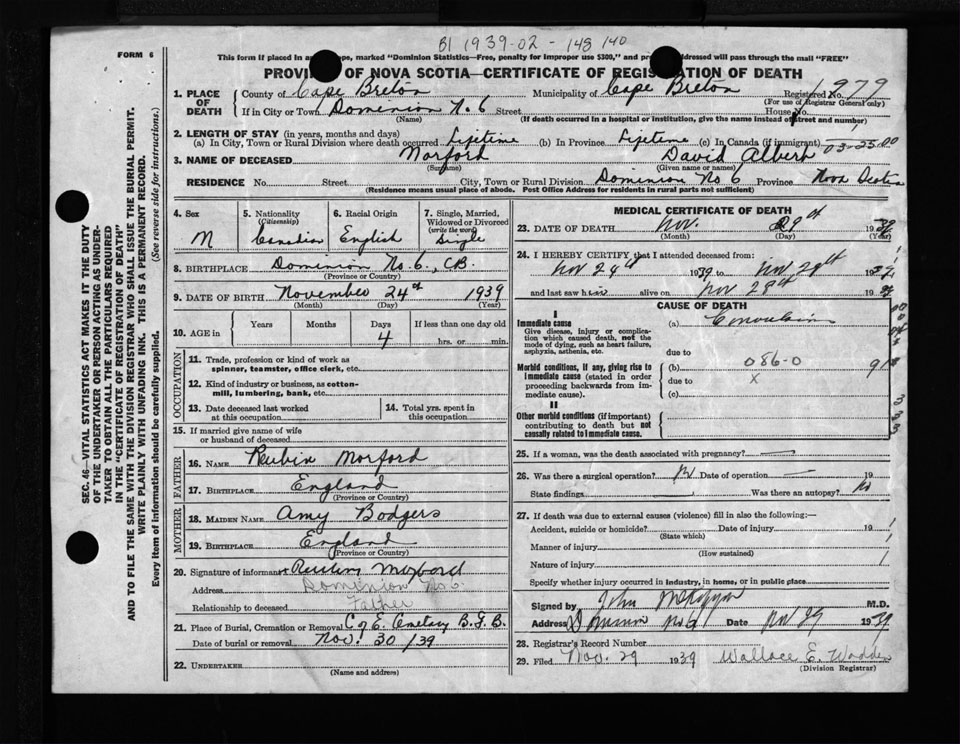 B1 1939-02-148 140
FORM 6
This form if placed in a pe, marked "Dominion Statistics—Free, penalty for improper use $300," and pr ddressed will pass through the mail "FREE"
PROVI OF NOVA SCOTIA—CERTIFICATE OF REGIS ATION OF DEATH
1979
1. PLACE OF DEATH
County of Cape Breton Municipality of Cape Breton Registered No.
(For use of Registrar General only)
If in City or Town Dominion No. 6 Street House No.
(Name) (If death occurred in a hospital or institution, give the name instead of street and number)
2. LENGTH OF STAY (in years, months and days)
(a) In City, Town or Rural Division where death occurred Lifetime (b) In Province Lifetime (c) In Canada (if immigrant) 03-25.00
3. NAME OF DECEASED Morford David Albert
(Surname) (Given name or names)
RESIDENCE No. Street City, Town or Rural Division Dominion No 6 Province Nova Scotia
(Residence means usual place of abode. Post Office Address for residents in rural parts not sufficient)
4. Sex M
5. Nationality (Citizenship) Canadian
6. Racial Origin English
7. Single, Married, Widowed or Divorced (write the word) Single
8. BIRTHPLACE Dominion No. 6, C.B.
(Province or Country)
9. DATE OF BIRTH November 24th 1939
(Month) (Day) (Year)
10. AGE in Years Months Days 4 If less than one day old hrs. or min.
OCCUPATION
11. Trade, profession or kind of work as spinner, teamster, office clerk, etc.
12. Kind of industry or business, as cotton-mill, lumbering, bank, etc.
13. Date deceased last worked at this occupation
14. Total yrs. spent in this occupation
15. If married give name of wife or husband of deceased
FATHER
16. NAME Rubin Morford
17. BIRTHPLACE England
(Province or Country)
MOTHER
18. MAIDEN NAME Amy Bodgers
19. BIRTHPLACE England
(Province or Country)
20. Signature of informant
Address Dominion No 6
Relationship to deceased Father
21. Place of Burial, Cremation or Removal C of E. Cemetery B.G.B.
Date of burial or removal Nov. 30 /39
22. UNDERTAKER
(Name and address)
MEDICAL CERTIFICATE OF DEATH
23. DATE OF DEATH Nov. 29th 1939
(Month) (Day) (Year)
24. I HEREBY CERTIFY that I attended deceased from:
Nov 24th 1939 to Nov 29th 1939
and last saw him alive on Nov 28th 1939
CAUSE OF DEATH
I
Immediate cause
Give disease, injury or complication which caused death, not the mode of dying, such as heart failure, asphyxia, asthenia, etc.
(a) Convulsions
due to
Morbid conditions, if any, giving rise to immediate cause (stated in order proceeding backwards from immediate cause).
(b) 086-0
due to X
(c)
II
Other morbid conditions (if important) contributing to death but not causally related to immediate cause.
25. If a woman, was the death associated with pregnancy?
26. Was there a surgical operation? No Date of operation 19
State findings Was there an autopsy? No
27. If death was due to external causes (violence) fill in also the following:—
Accident, suicide or homicide? Date of injury 19
(State which)
Manner of injury
(How sustained)
Nature of injury
Specify whether injury occurred in industry, in home, or in public place
Signed by John M.D.
Address Dominion No 6 Date Nov 29 1939
28. Registrar's Record Number
29. Filed Nov. 29 1939 Wallace E. Wadden
(Division Registrar)
SEC. 46—VITAL STATISTICS ACT MAKES IT THE DUTY
OF THE UNDERTAKER OR PERSON ACTING AS UNDER-
TAKER TO OBTAIN ALL THE PARTICULARS REQUIRED
IN THE "CERTIFICATE OF REGISTRATION OF DEATH"
AND TO FILE THE SAME WITH THE DIVISION REGISTRAR WHO SHALL ISSUE THE BURIAL PERMIT.
WRITE PLAINLY WITH UNFADING INK. THIS IS A PERMANENT RECORD.
Every item of information should be carefully supplied. (See reverse side for instructions.)